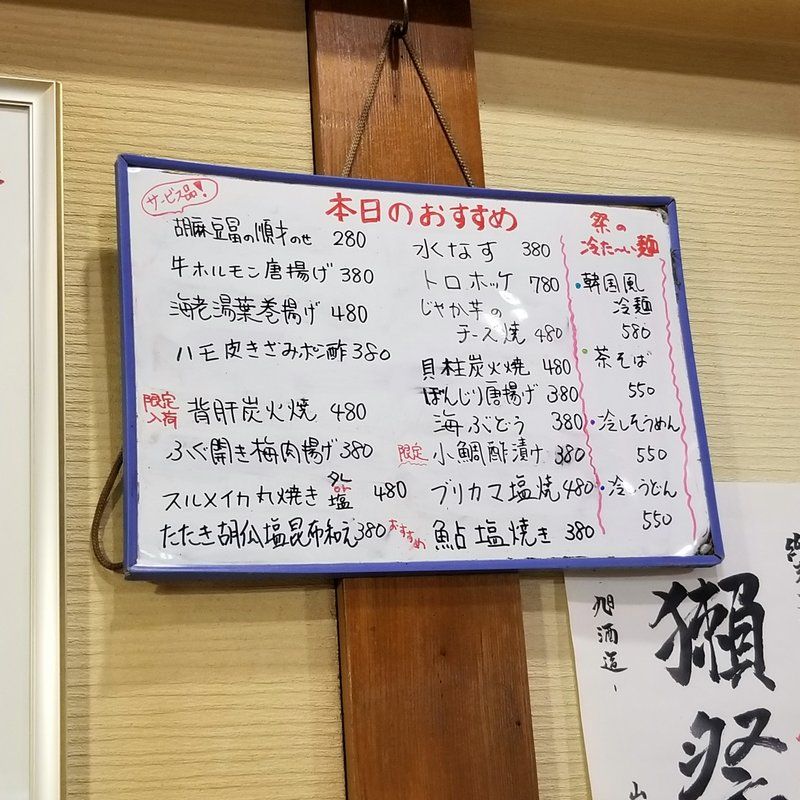 本日のおすすめ
サービス品!
胡麻豆冨の順才のせ 280
牛ホルモン唐揚げ 380
海老湯葉巻揚げ 480
ハモ皮きざみポン酢 380
限定入荷 背肝炭火焼 480
ふぐ開き梅肉揚げ 380
スルメイカ丸焼き タレor塩 480
たたき胡仏塩昆布和え 380
水なす 380
トロホッケ 780
じゃか芋の
チーズ焼 480
貝柱炭火焼 480
ぼんじり唐揚げ 380
海ぶどう 380
限定 小鯛酢漬け 380
ブリカマ塩焼 480
おすすめ 鮎塩焼き 380
祭の
冷た〜い麺
・韓国風
冷麺
580
・茶そば
550
・冷しそうめん
550
・冷しうどん
550
獺祭
旭酒造
山